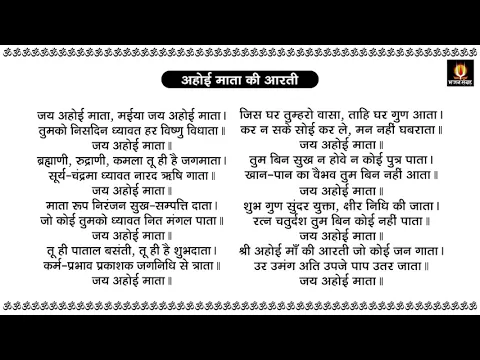 अहोई माता की आरती
भजन संग्रह
जय अहोई माता, मईया जय अहोई माता।
तुमको निसदिन ध्यावत हर विष्णु विधाता॥
जय अहोई माता॥
ब्रह्माणी, रुद्राणी, कमला तू ही है जगमाता।
सूर्य-चंद्रमा ध्यावत नारद ऋषि गाता॥
जय अहोई माता॥
माता रूप निरंजन सुख-सम्पत्ति दाता।
जो कोई तुमको ध्यावत नित मंगल पाता॥
जय अहोई माता॥
तू ही पाताल बसंती, तू ही है शुभदाता।
कर्म-प्रभाव प्रकाशक जगनिधि से त्राता॥
जय अहोई माता॥
जिस घर तुम्हरो वासा, ताहि घर गुण आता।
कर न सके सोई कर ले, मन नहीं घबराता॥
जय अहोई माता॥
तुम बिन सुख न होवे न कोई पुत्र पाता।
खान-पान का वैभव तुम बिन नहीं आता॥
जय अहोई माता॥
शुभ गुण सुंदर युक्ता, क्षीर निधि की जाता।
रत्न चतुर्दश तुम बिन कोई नहीं पाता॥
जय अहोई माता॥
श्री अहोई माँ की आरती जो कोई जन गाता।
उर उमंग अति उपजे पाप उतर जाता॥
जय अहोई माता॥